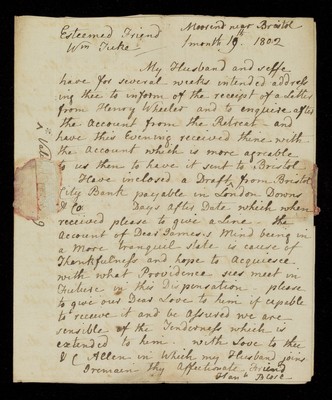 Esteemed Friend
Moorend near Bristol
Wm Tuke
1 month 19th 1802
My Husband and selfe
have for several weeks intended address
ing thee to inform of the receipt of a Letter
from Henry Wheeler and to enquire after
the Account from the Retreat and
have this Evening received thine with
the Account which is more agreeable
to us then to have it sent to Bristol
Have inclosed a Draft from Bristol
City Bank payable in London Down
& Co Days after Date which when
received please to give a line the
Account of Dear James's Mind being in
a More tranquil state is cause of
Thankfulness and hope to Acquiesce
with what Providence sees meet in
Future in this dispensation please
to give our Dear Love to him if capable
to receive it and be assured we are
sensible of the Tenderness which is
extended to him. with Love to thee
& C Allen in which my Husband joins
I remain thy Affectionate Friend